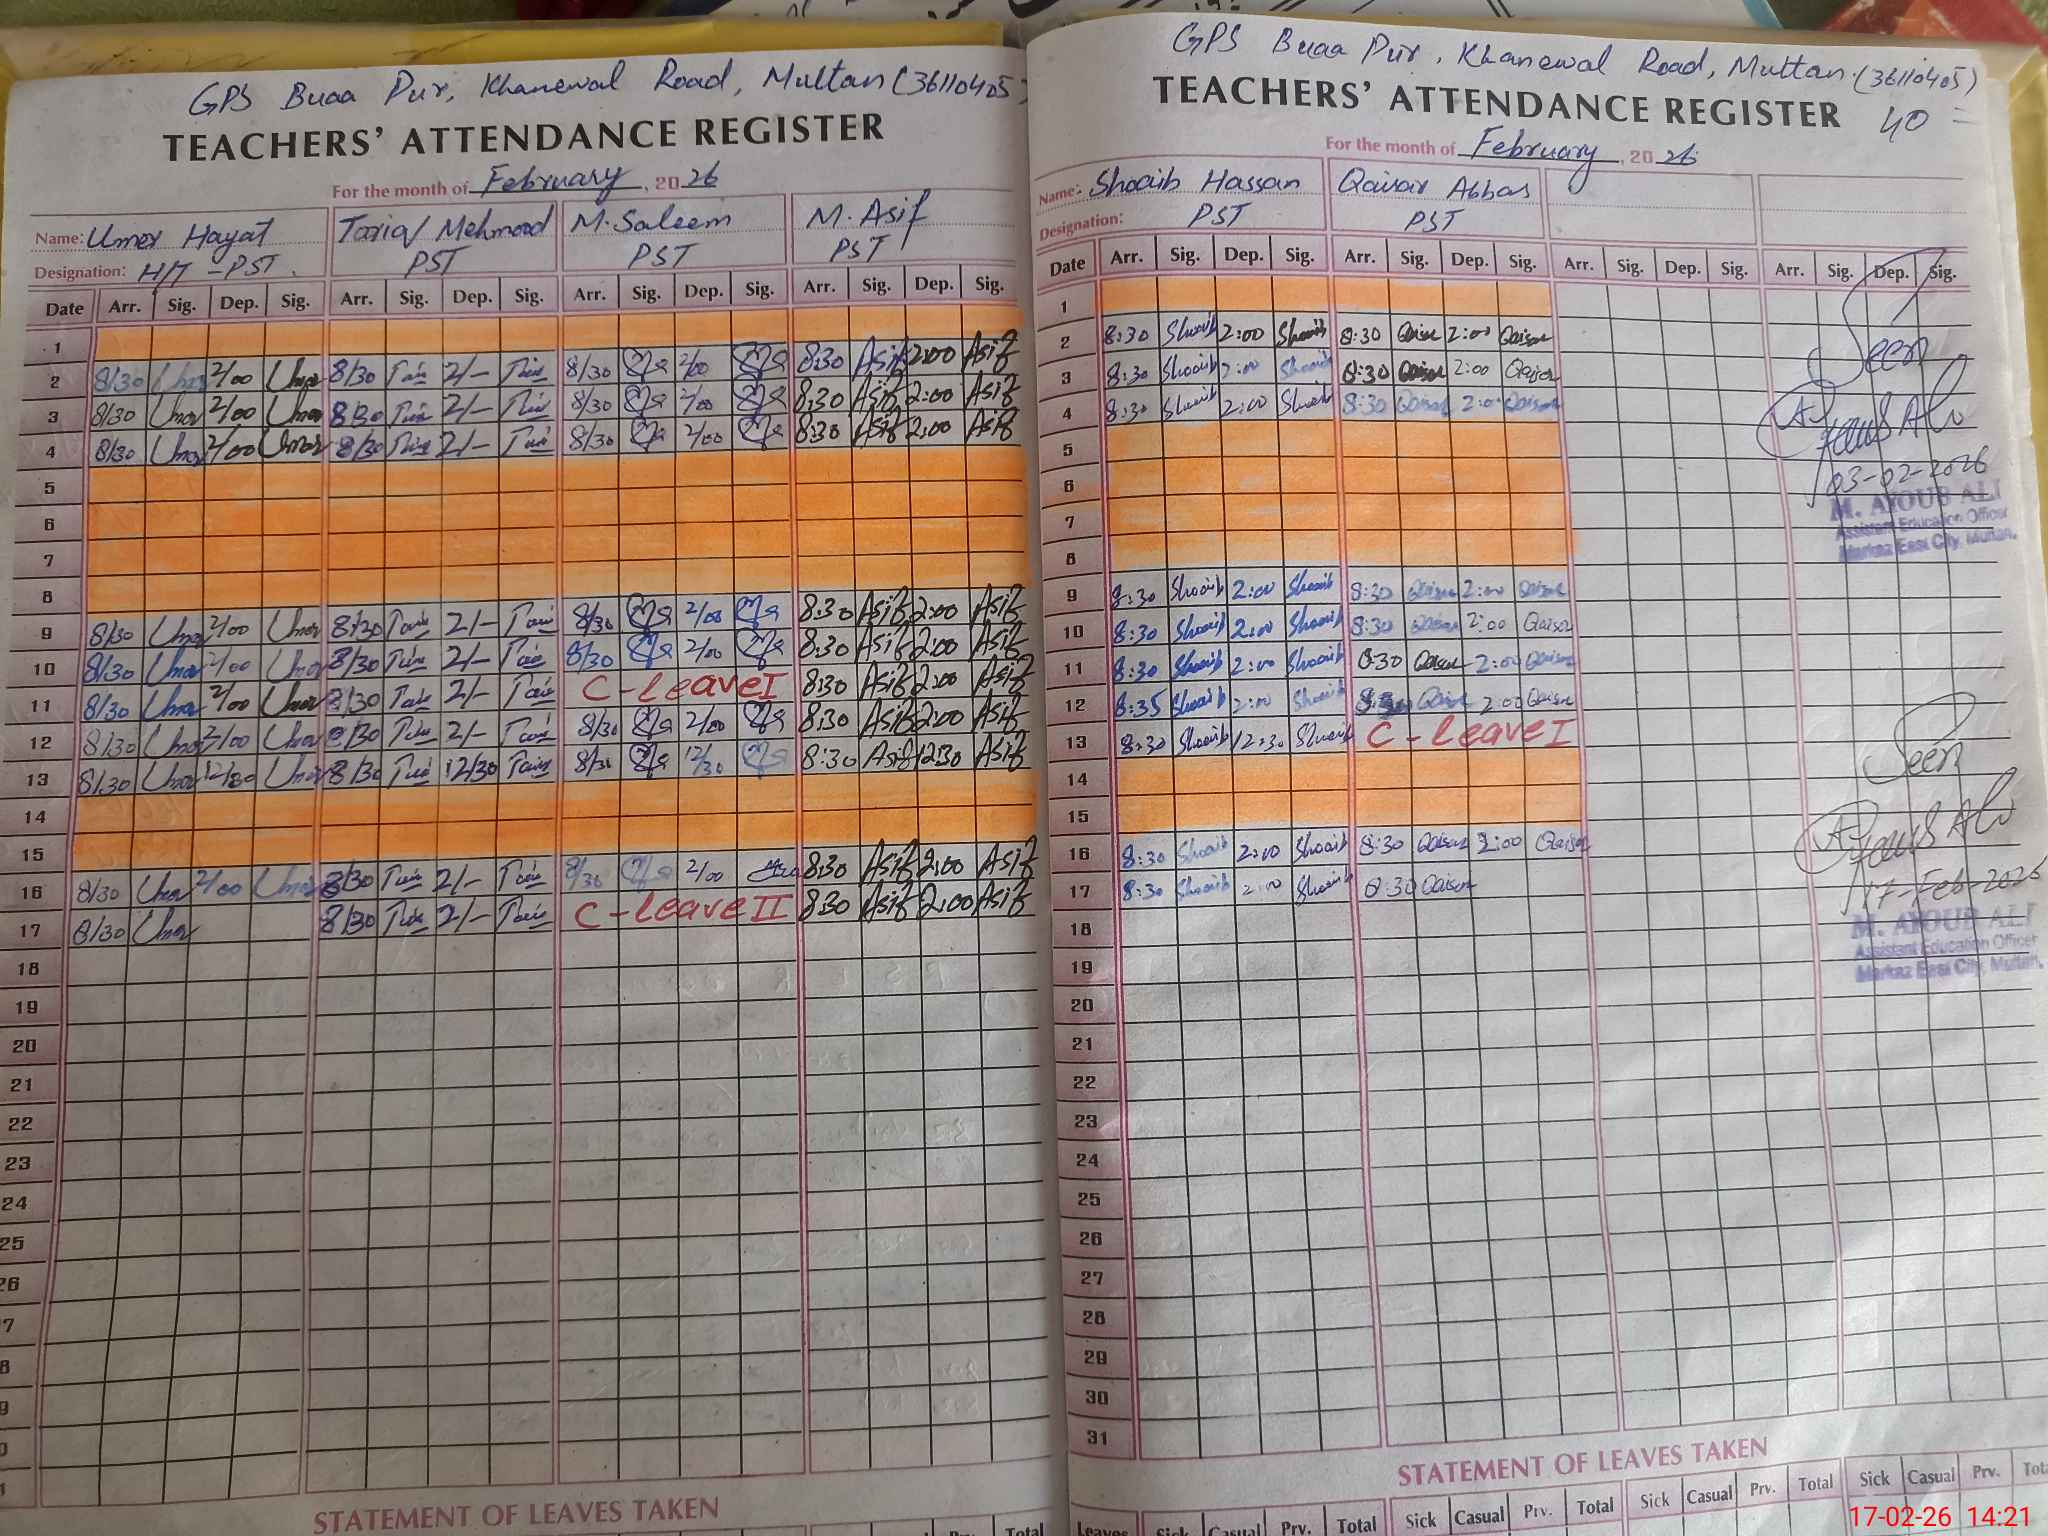 GPS Buaa Pur, Khanewal Road, Multan (36110405)
TEACHERS' ATTENDANCE REGISTER
For the month of February, 2026
Name: Umer Hayat Tariq Mehmood M. Saleem M. Asif
Designation: H/T - PST. PST PST PST
Date Arr. Sig. Dep. Sig. Arr. Sig. Dep. Sig. Arr. Sig. Dep. Sig. Arr. Sig. Dep. Sig.
1
2 8/30 Umer 2/00 Umer 8/30 Tariq 2/- Tariq 8/30 2/00 8:30 Asif 2:00 Asif
3 8/30 Umer 2/00 Umer 8/30 Tariq 2/- Tariq 8/30 2/00 8:30 Asif 2:00 Asif
4 8/30 Umer 2/00 Umer 8/30 Tariq 2/- Tariq 8/30 2/00 8:30 Asif 2:00 Asif
5
6
7
8
9 8/30 Umer 2/00 Umer 8/30 Tariq 2/- Tariq 8/30 2/00 8:30 Asif 2:00 Asif
10 8/30 Umer 2/00 Umer 8/30 Tariq 2/- Tariq 8/30 2/00 8:30 Asif 2:00 Asif
11 8/30 Umer 2/00 Umer 8/30 Tariq 2/- Tariq C-leave I 8:30 Asif 2:00 Asif
12 8/30 Umer 2/00 Umer 8/30 Tariq 2/- Tariq 8/30 2/00 8:30 Asif 2:00 Asif
13 8/30 Umer 12/30 Umer 8/30 Tariq 12/30 Tariq 8/30 12/30 8:30 Asif 12:30 Asif
14
15
16 8/30 Umer 2/00 Umer 8/30 Tariq 2/- Tariq 8/30 2/00 8:30 Asif 2:00 Asif
17 8/30 Umer 8/30 Tariq 2/- Tariq C-leave II 8:30 Asif 2:00 Asif
18
19
20
21
22
23
24
25
26
7
8
9
0
1
STATEMENT OF LEAVES TAKEN
Prv. Total
GPS Buaa Pur, Khanewal Road, Multan. (36110405)
TEACHERS' ATTENDANCE REGISTER 40 =
For the month of February, 2026
Name: Shoaib Hassan Qaisar Abbas
Designation: PST PST
Date Arr. Sig. Dep. Sig. Arr. Sig. Dep. Sig. Arr. Sig. Dep. Sig. Arr. Sig. Dep. Sig.
1
2 8:30 Shoaib 2:00 Shoaib 8:30 Qaisar 2:00 Qaisar
Seen
3 8:30 Shoaib 2:00 Shoaib 8:30 Qaisar 2:00 Qaisar
4 8:30 Shoaib 2:00 Shoaib 8:30 Qaisar 2:00 Qaisar
Ayoub Ali
5
03-02-2026
6
M. AYOUB ALI
7
Assistant Education Officer
Markaz East City, Multan.
8
9 8:30 Shoaib 2:00 Shoaib 8:30 Qaisar 2:00 Qaisar
10 8:30 Shoaib 2:00 Shoaib 8:30 Qaisar 2:00 Qaisar
11 8:30 Shoaib 2:00 Shoaib 8:30 Qaisar 2:00 Qaisar
12 8:35 Shoaib 2:00 Shoaib Qaisar 2:00 Qaisar
13 8:30 Shoaib 12:30 Shoaib C-leave I
Seen
14
15
Ayoub Ali
16 8:30 Shoaib 2:00 Shoaib 8:30 Qaisar 2:00 Qaisar
17 8:30 Shoaib 2:00 Shoaib 8:30 Qaisar
17-Feb-2026
18
M. AYOUB ALI
Assistant Education Officer
19
Markaz East City, Multan.
20
21
22
23
24
25
26
27
28
29
30
31
STATEMENT OF LEAVES TAKEN
Leaves Sick Casual Prv. Total Sick Casual Prv. Total Sick Casual Prv. Total Sick Casual Prv.
17-02-26 14:21